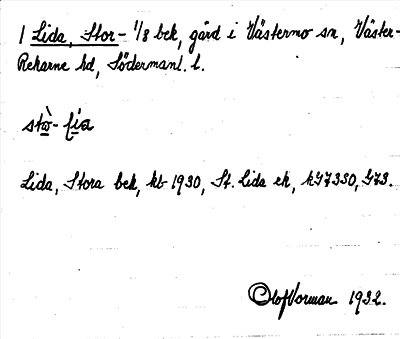 1 Lida, Stor- 1/8 bek, gård i Västermo sn, Väster-
Rekarne hd, Södermanl. l.
Lida, Stora bek, kb 1930, St. Lida ek, k97350, G73.
Olof Vorman 1932.